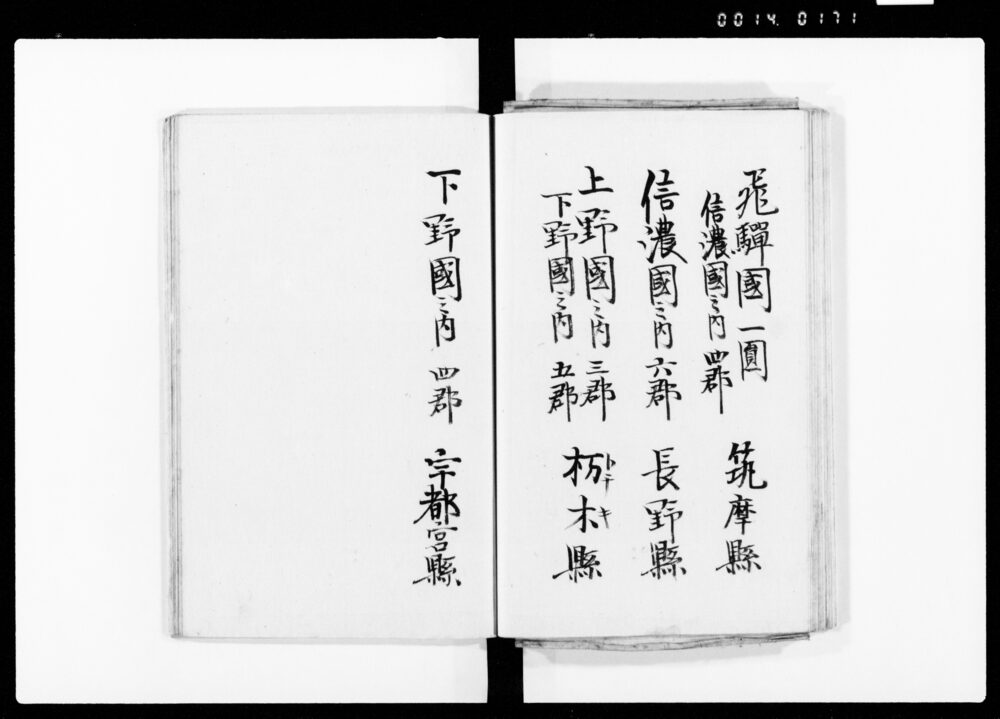 0014.0171
飛驒國一圓
信濃國之内四郡
筑摩縣
信濃國之内六郡
長野縣
上野國之内三郡
下野國之内五郡
栃木縣
トチキ
下野國之内四郡
宇都宮縣